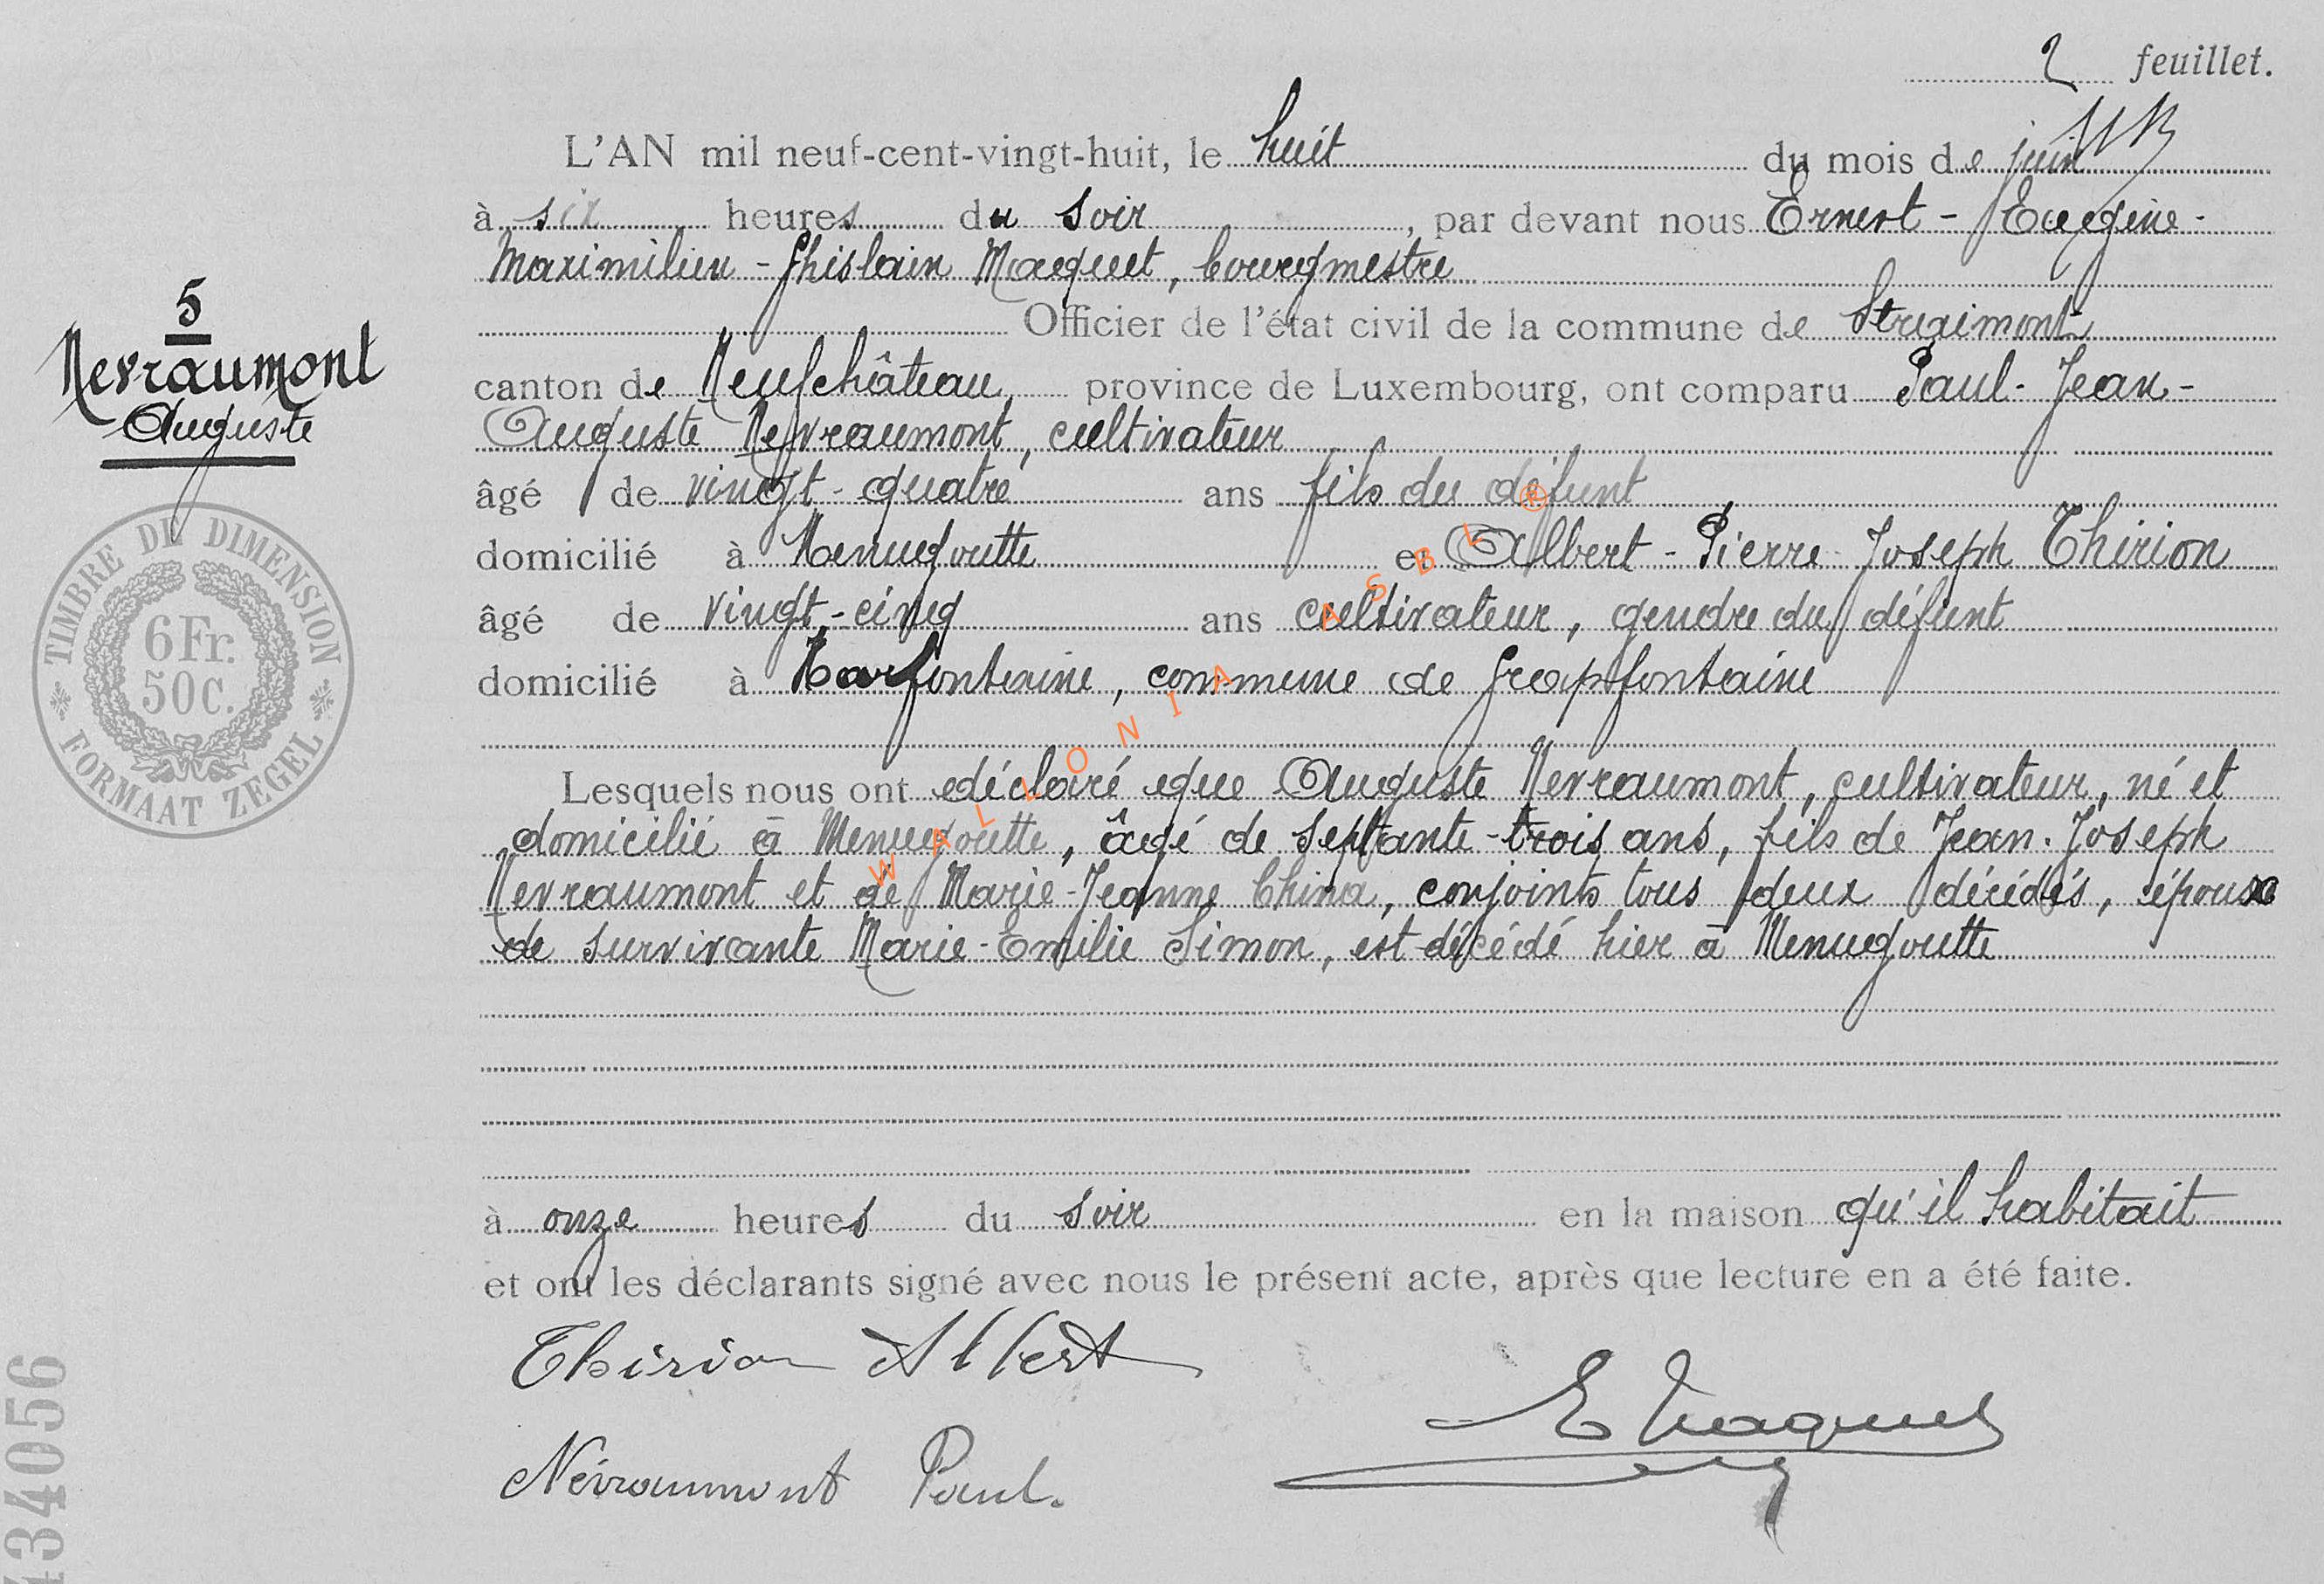 2 feuillet.
L'AN mil neuf-cent-vingt-huit, le huit du mois de juin
à six heures du soir, par devant nous Ernest-Eugène-
Maximilien-Ghislain Maquet, bourgmestre
Officier de l'état civil de la commune de Straimont
5
Nevraumont
Auguste
canton de Neufchâteau, province de Luxembourg, ont comparu Paul-Jean-
Auguste Nevraumont, cultivateur
âgé de vingt-quatre ans fils du défunt
domicilié à Menugoutte et Albert-Pierre-Joseph Thirion
âgé de vingt-cinq ans cultivateur, gendre du défunt
domicilié à Harfontaine, commune de Grapfontaine
TIMBRE DE DIMENSION
6 Fr.
50 C.
FORMAAT ZEGEL
Lesquels nous ont déclaré que Auguste Nevraumont, cultivateur, né et
domicilié à Menugoutte, âgé de septante-trois ans, fils de Jean-Joseph
Nevraumont et de Marie-Jeanne China, conjoints tous deux décédés, époux
de survivante Marie-Emilie Simon, est décédé hier à Menugoutte
à onze heures du soir en la maison qu'il habitait
et ont les déclarants signé avec nous le présent acte, après que lecture en a été faite.
Thirion Albert
E Maquet
Névraumont Paul.
434056
WALLONIA ASBL ®